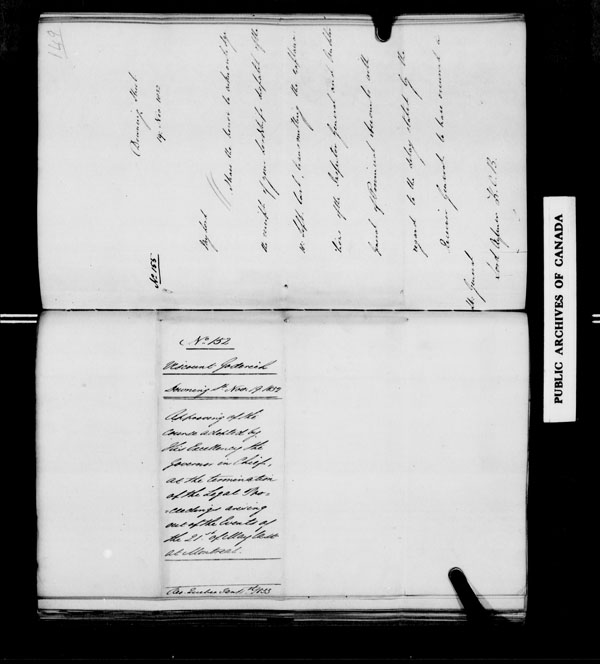 149
No. 155
Downing Street
19 Nov 1832
My Lord
I have the honor to acknowledge
the receipt of your Lordship's despatch of the
Sept. last, transmitting the
of the Inspector General and Public
of Provincial Accounts with
regard to the delay stated by the
Receiver General to have occurred in
Lt. General
Lord Aylmer K.C.B.
No. 152
Viscount Goderich
Downing St. Nov. 19 1832
Approving of the
course adopted by
His Excellency the
Governor in Chief,
at the termination
of the Legal Pro-
ceedings arising
out of the Events of
the 21st of May last
at Montreal.
Rec. Quebec 1833
PUBLIC ARCHIVES OF CANADA